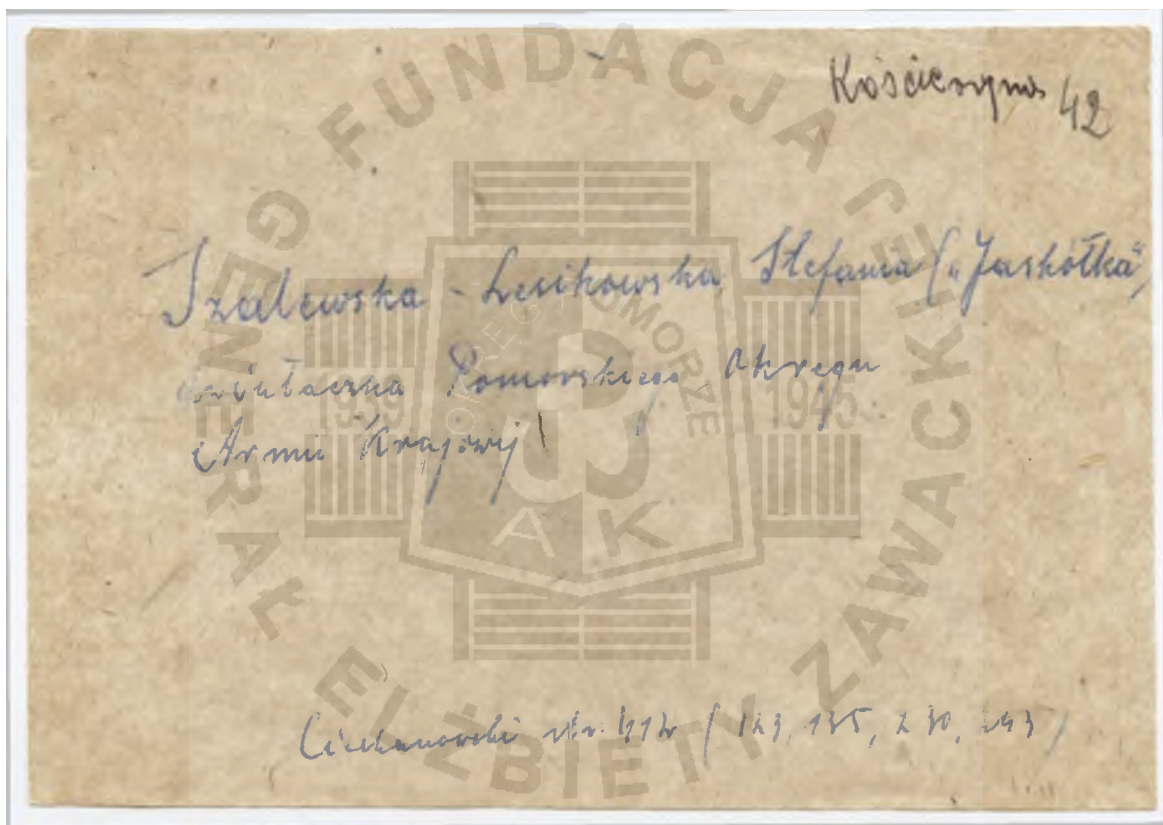 Kościerzyna 42
Szalewska - Lesikowska Stefania („Jaskółka”)
działaczka Pomorskiego Okręgu
Armii Krajowej
Ciechanowski str. 112 (123, 135, 230, 243)
FUNDACJA GENERAŁ ELŻBIETY ZAWACKIEJ
OKRĘG POMORZE
1939 1945
AK